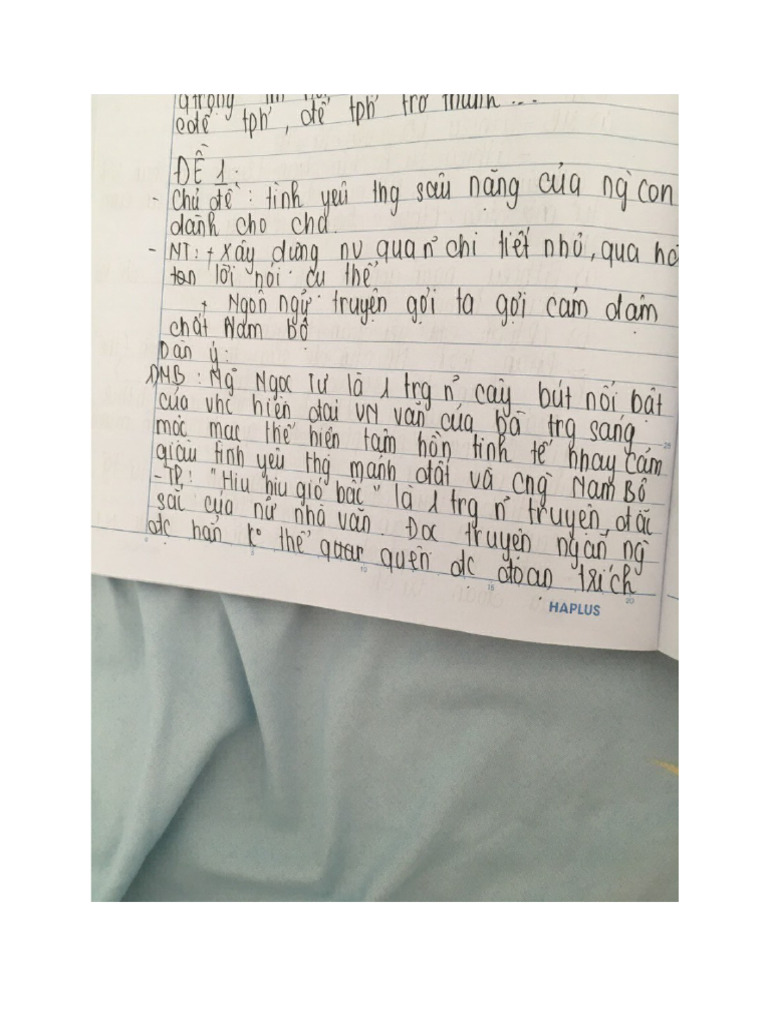 edề tph', để tph' trở thành ...
ĐỀ 1:
- Chủ đề: tình yêu thg sâu nặng của ng con
dành cho cha.
- NT: + Xây dựng nv qua n' chi tiết nhỏ, qua
lời nói cụ thể
+ Ngôn ngữ truyện gợi tả gợi cảm đậm
chất Nam Bộ
Dàn ý:
1) MB: Ng Ngọc Tư là 1 trg n' cây bút nổi bật
của vhc hiện đại VN văn của bà trg sáng
mộc mạc thể hiện tâm hồn tinh tế nhạy cảm
giàu tình yêu thg mảnh đất và cng Nam Bộ
- TP: "Hiu hiu gió bấc" là 1 trg n' truyện đặc
sắc của nữ nhà văn. Đọc truyện ngắn ng
đọc hẳn k° thể quên đc đoạn trích
HAPLUS